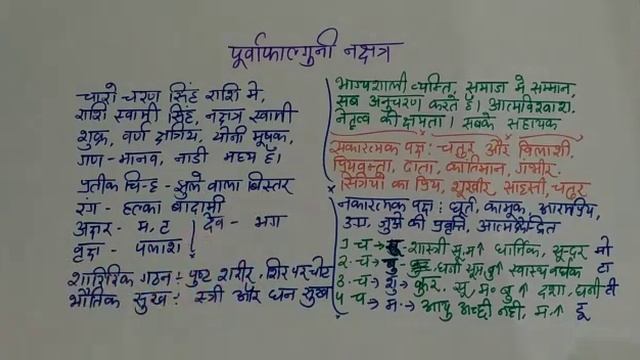 पूर्वाफाल्गुनी नक्षत्र
चारो चरण सिंह राशि मे,
राशि स्वामी सिंह, नक्षत्र स्वामी
शुक्र, वर्ण क्षत्रिय, योनी मूषक,
गण-मानव, नाडी मध्य है।
प्रतीक चिन्ह - झुले वाला बिस्तर
रंग - हल्का बादामी
अक्षर - म, ट
देव - भग
वृक्ष - पलाश
शारिरिक गठन : पुष्ट शरीर, शिर पर चोट
भौतिक सुख : स्त्री और धन सुख
भाग्यशाली व्यक्ति, समाज मे सम्मान,
सब अनुचरण करते है। आत्मविश्वाश,
नेतृत्व की क्षमता। सबके सहायक
सकारत्मक पक्ष : चतुर और विलाशी,
प्रियवक्ता, दाता, कांतिमान, गंभीर,
स्त्रियो का प्रिय, शूरवीर, साहसी, चतुर
नकारत्मक पक्ष : धूर्त, कामुक,
उग्र, जुऐ की प्रवृत्ति, आत्मकेन्द्रित
1-च → शास्त्री सू, म↑ धार्मिक, सुन्दर मो
2-च → बु धनी सू, म, बु↑ टा
3-च → शु क्रुर, सू, मं॰ बु↑ दशा, धनी टी
4-च → मं॰ → आयु अच्छी नही, मं.↑ टू